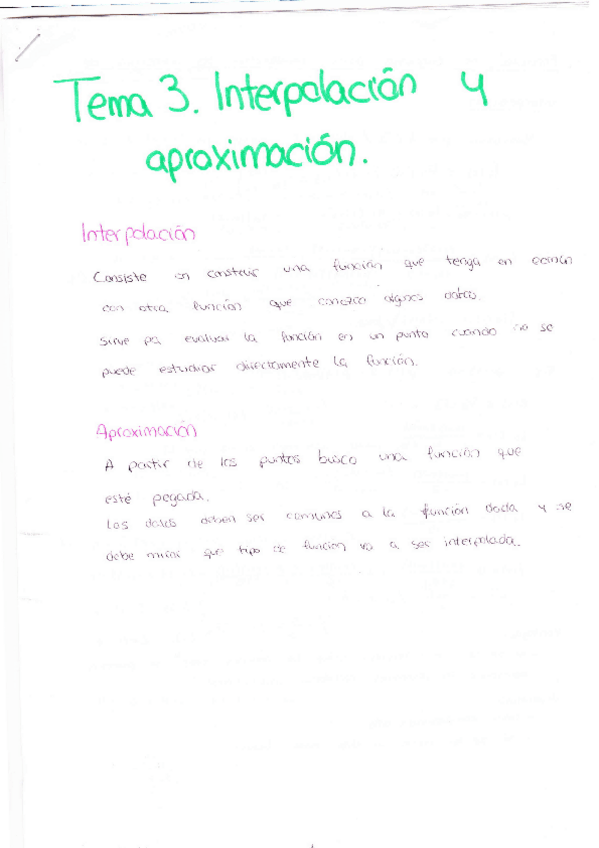 Tema 3. Interpolación y
aproximación.
Interpolación
Consiste en construir una función que tenga en común
con otra función que conozco algunos datos.
Sirve pa evaluar la función en un punto cuando no se
puede estudiar directamente la función.
Aproximación
A partir de los puntos busco una función que
esté pegada.
Los datos deben ser comunes a la función dada y se
debe mirar que tipo de función va a ser interpolada.